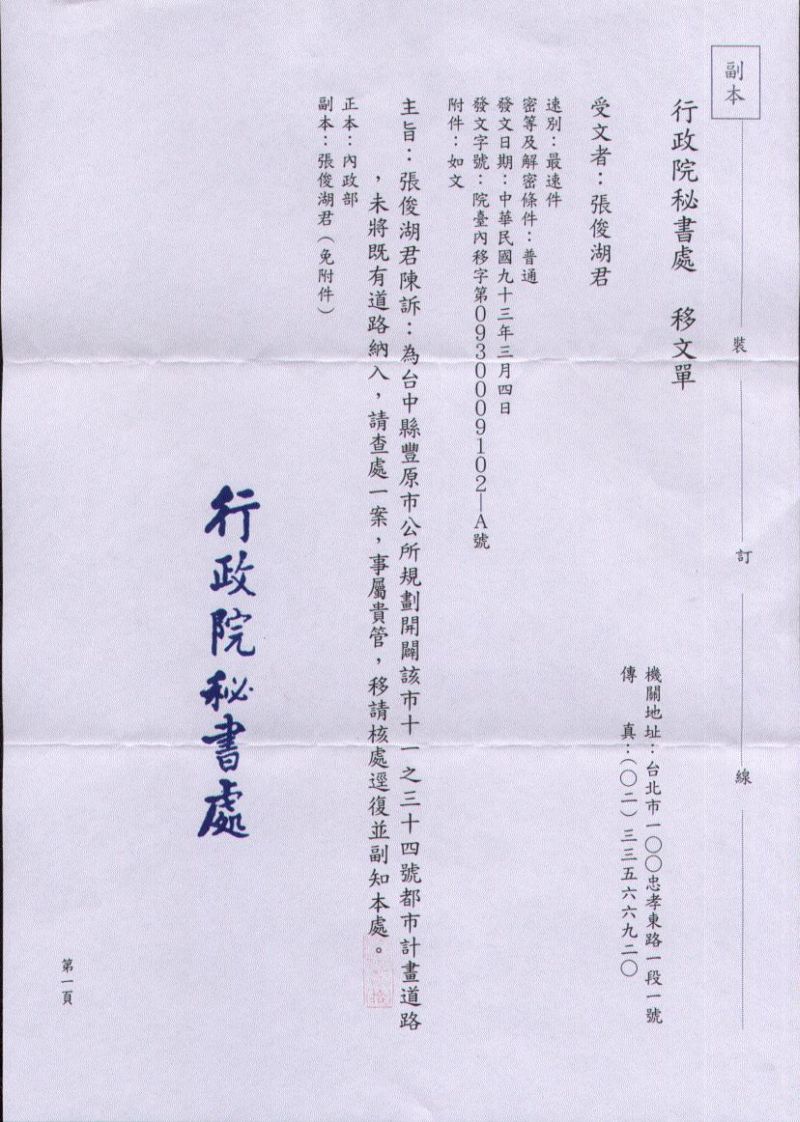 副本
裝
訂
線
行政院秘書處　移文單
機關地址：台北市一〇〇忠孝東路一段一號
傳　　真：(〇二) 三三五六六九二〇
受文者：張俊湖君
速別：最速件
密等及解密條件：普通
發文日期：中華民國九十三年三月四日
發文字號：院臺內移字第0930009102—A號
附件：如文
主旨：張俊湖君陳訴：為台中縣豐原市公所規劃開闢該市十一之三十四號都市計畫道路
，未將既有道路納入，請查處一案，事屬貴管，移請核處逕復並副知本處。
正本：內政部
副本：張俊湖君（免附件）
行政院秘書處
第一頁